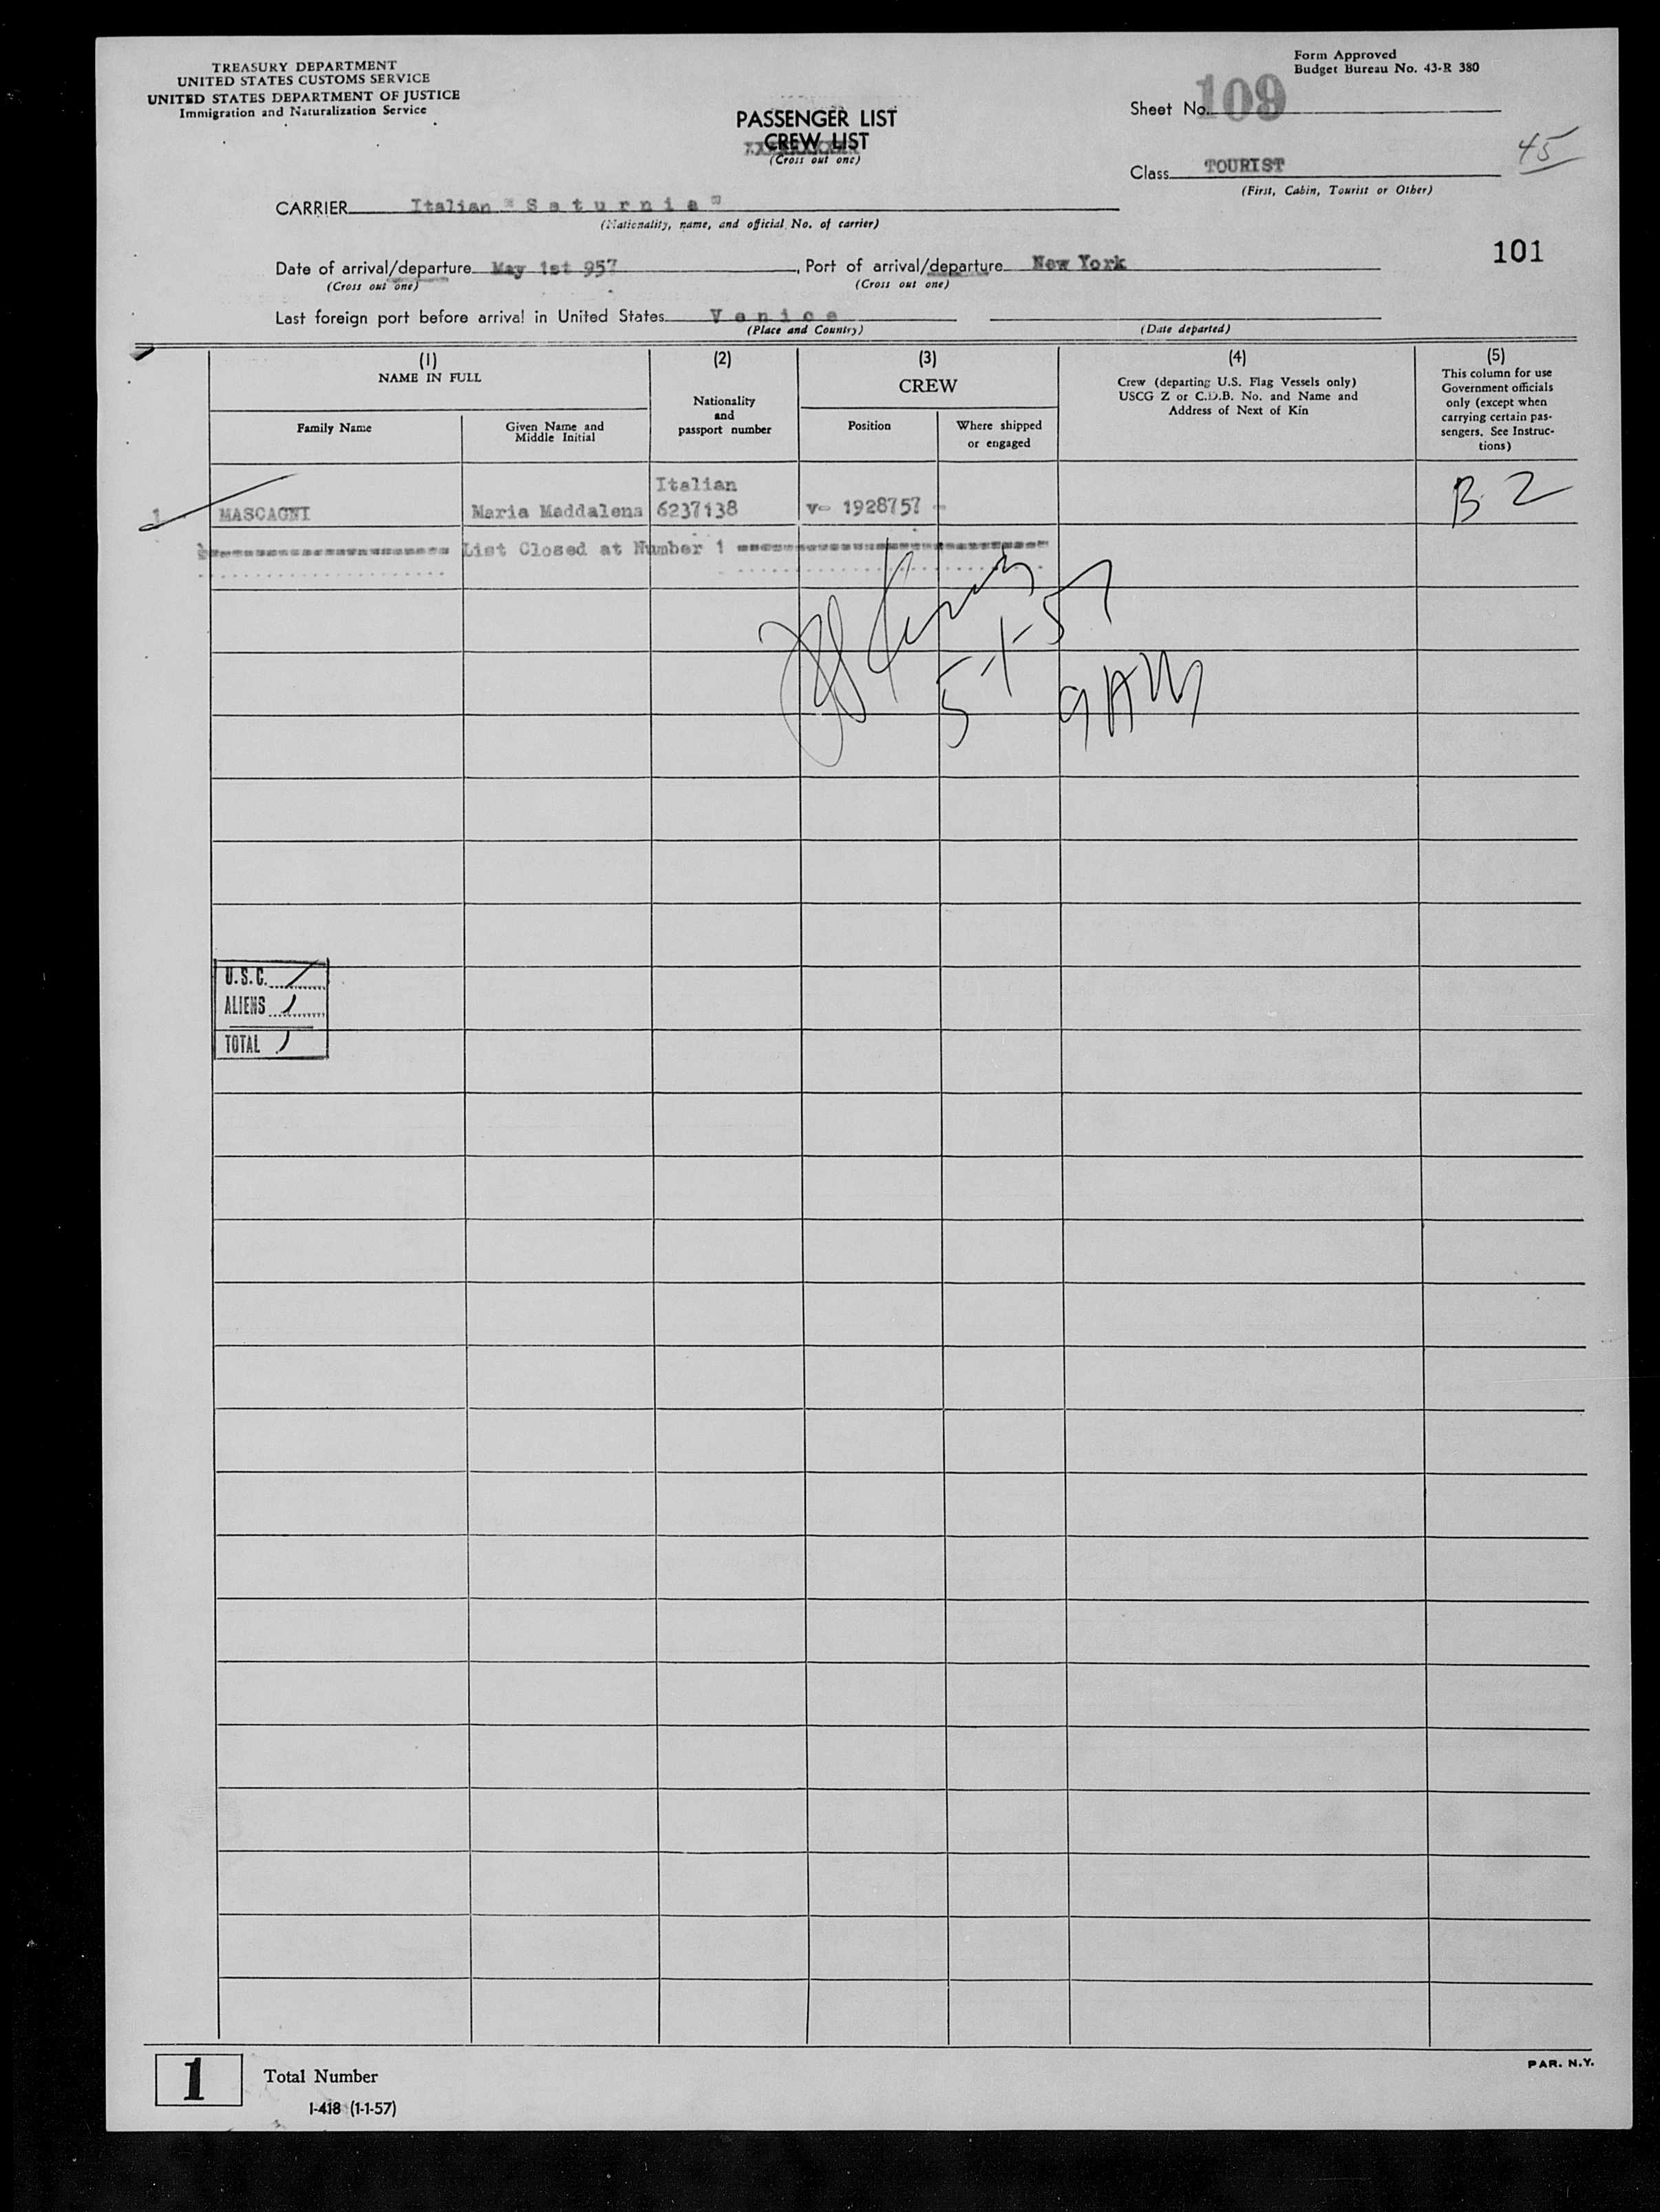 TREASURY DEPARTMENT
UNITED STATES CUSTOMS SERVICE
UNITED STATES DEPARTMENT OF JUSTICE
Immigration and Naturalization Service
Form Approved
Budget Bureau No. 43-R 380
PASSENGER LIST
CREW LIST
(Cross out one)
Sheet No. 109
45
Class TOURIST
(First, Cabin, Tourist or Other)
CARRIER Italian "Saturnia"
(Nationality, name, and official No. of carrier)
101
Date of arrival/departure May 1st 957, Port of arrival/departure New York
(Cross out one) (Cross out one)
Last foreign port before arrival in United States Venice
(Place and Country) (Date departed)
(1) (2) (3) (4) (5)
NAME IN FULL
Family Name
Given Name and
Middle Initial
Nationality
and
passport number
CREW
Position
Where shipped
or engaged
Crew (departing U.S. Flag Vessels only)
USCG Z or C.D.B. No. and Name and
Address of Next of Kin
This column for use
Government officials
only (except when
carrying certain pas-
sengers. See Instruc-
tions)
Italian
1 MASCAGNI Maria Maddalena 6237138 v- 1928757 - B 2
List Closed at Number 1
5-1-57
9AM
U.S.C. /
ALIENS 1
TOTAL 1
1 Total Number
I-418 (1-1-57)
PAR. N.Y.